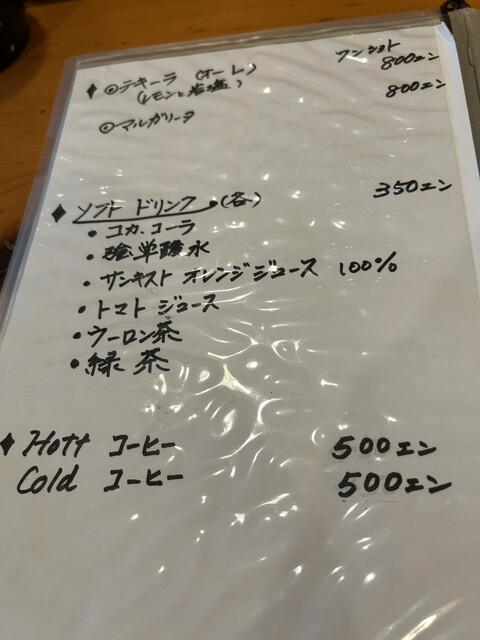 ◆ ◎テキーラ (オーレ) ワンショト 800エン
(レモンと岩塩)
◎マルガリータ 800エン
◆ ソフト ドリンク (各) 350エン
• コカ.コーラ
• 強炭酸水
• サンキスト オレンジジュース 100%
• トマト ジュース
• ウーロン茶
• 緑 茶
◆ Hott コーヒー 500エン
Cold コーヒー 500エン